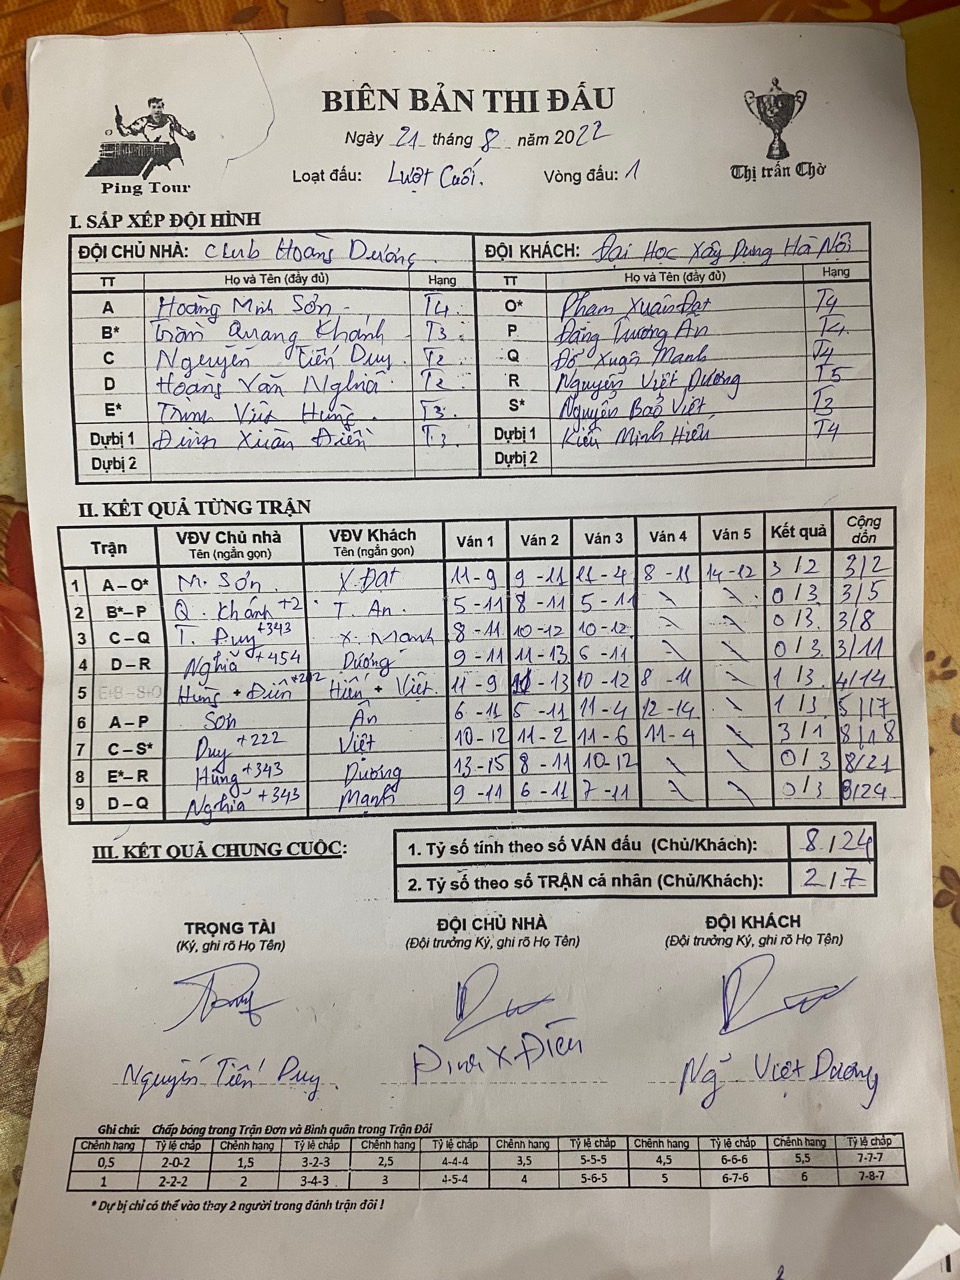 BIÊN BẢN THI ĐẤU
Ngày 21 tháng 8 năm 2022
Ping Tour
Loạt đấu: Lượt Cuối. Vòng đấu: 1
Thị trấn Chờ
I. SẮP XẾP ĐỘI HÌNH
ĐỘI CHỦ NHÀ: Club Hoàng Dương. ĐỘI KHÁCH: Đại Học Xây Dựng Hà Nội
TT Họ và Tên (đầy đủ) Hạng TT Họ và Tên (đầy đủ) Hạng
A Hoàng Minh Sơn T4 O* Phạm Xuân Đạt T4
B* Trần Quang Khánh T3 P Đặng Trương Ân T4
C Nguyễn Tiến Duy T2 Q Đỗ Xuân Mạnh T4
D Hoàng Văn Nghĩa T2 R Nguyễn Việt Dương T5
E* Trịnh Việt Hùng T3 S* Nguyễn Bảo Việt T3
Dự bị 1 Đinh Xuân Điền T3 Dự bị 1 Kiều Minh Hiếu T4
Dự bị 2 Dự bị 2
II. KẾT QUẢ TỪNG TRẬN
Trận VĐV Chủ nhà Tên (ngắn gọn) VĐV Khách Tên (ngắn gọn) Ván 1 Ván 2 Ván 3 Ván 4 Ván 5 Kết quả Cộng dồn
1 A – O* M. Sơn X. Đạt 11-9 9-11 11-4 8-11 14-12 3/2 3/2
2 B* – P Q. Khánh +2 T. Ân 5-11 8-11 5-11 0/3 3/5
3 C – Q T. Duy +343 X. Mạnh 8-11 10-12 10-12 0/3 3/8
4 D – R Nghĩa +454 Dương 9-11 11-13 6-11 0/3 3/11
5 Hùng + Điền +222 Hiếu + Việt 11-9 11-13 10-12 8-11 1/3 4/14
6 A – P Sơn Ân 6-11 5-11 11-4 12-14 1/3 5/17
7 C – S* Duy +222 Việt 10-12 11-2 11-6 11-4 3/1 8/18
8 E* – R Hùng +343 Dương 13-15 8-11 10-12 0/3 8/21
9 D – Q Nghĩa +343 Mạnh 9-11 6-11 7-11 0/3 8/24
III. KẾT QUẢ CHUNG CUỘC:
1. Tỷ số tính theo số VÁN đấu (Chủ/Khách): 8/24
2. Tỷ số theo số TRẬN cá nhân (Chủ/Khách): 2/7
TRỌNG TÀI ĐỘI CHỦ NHÀ ĐỘI KHÁCH
(Ký, ghi rõ Họ Tên) (Đội trưởng Ký, ghi rõ Họ Tên) (Đội trưởng Ký, ghi rõ Họ Tên)
Nguyễn Tiến Duy. Đinh X Điền Ng Việt Dương
Ghi chú: Chấp bóng trong Trận Đơn và Bình quân trong Trận Đôi
Chênh hạng Tỷ lệ chấp Chênh hạng Tỷ lệ chấp Chênh hạng Tỷ lệ chấp Chênh hạng Tỷ lệ chấp Chênh hạng Tỷ lệ chấp Chênh hạng Tỷ lệ chấp
0,5 2-0-2 1,5 3-2-3 2,5 4-4-4 3,5 5-5-5 4,5 6-6-6 5,5 7-7-7
1 2-2-2 2 3-4-3 3 4-5-4 4 5-6-5 5 6-7-6 6 7-8-7
* Dự bị chỉ có thể vào thay 2 người trong đánh trận đôi !